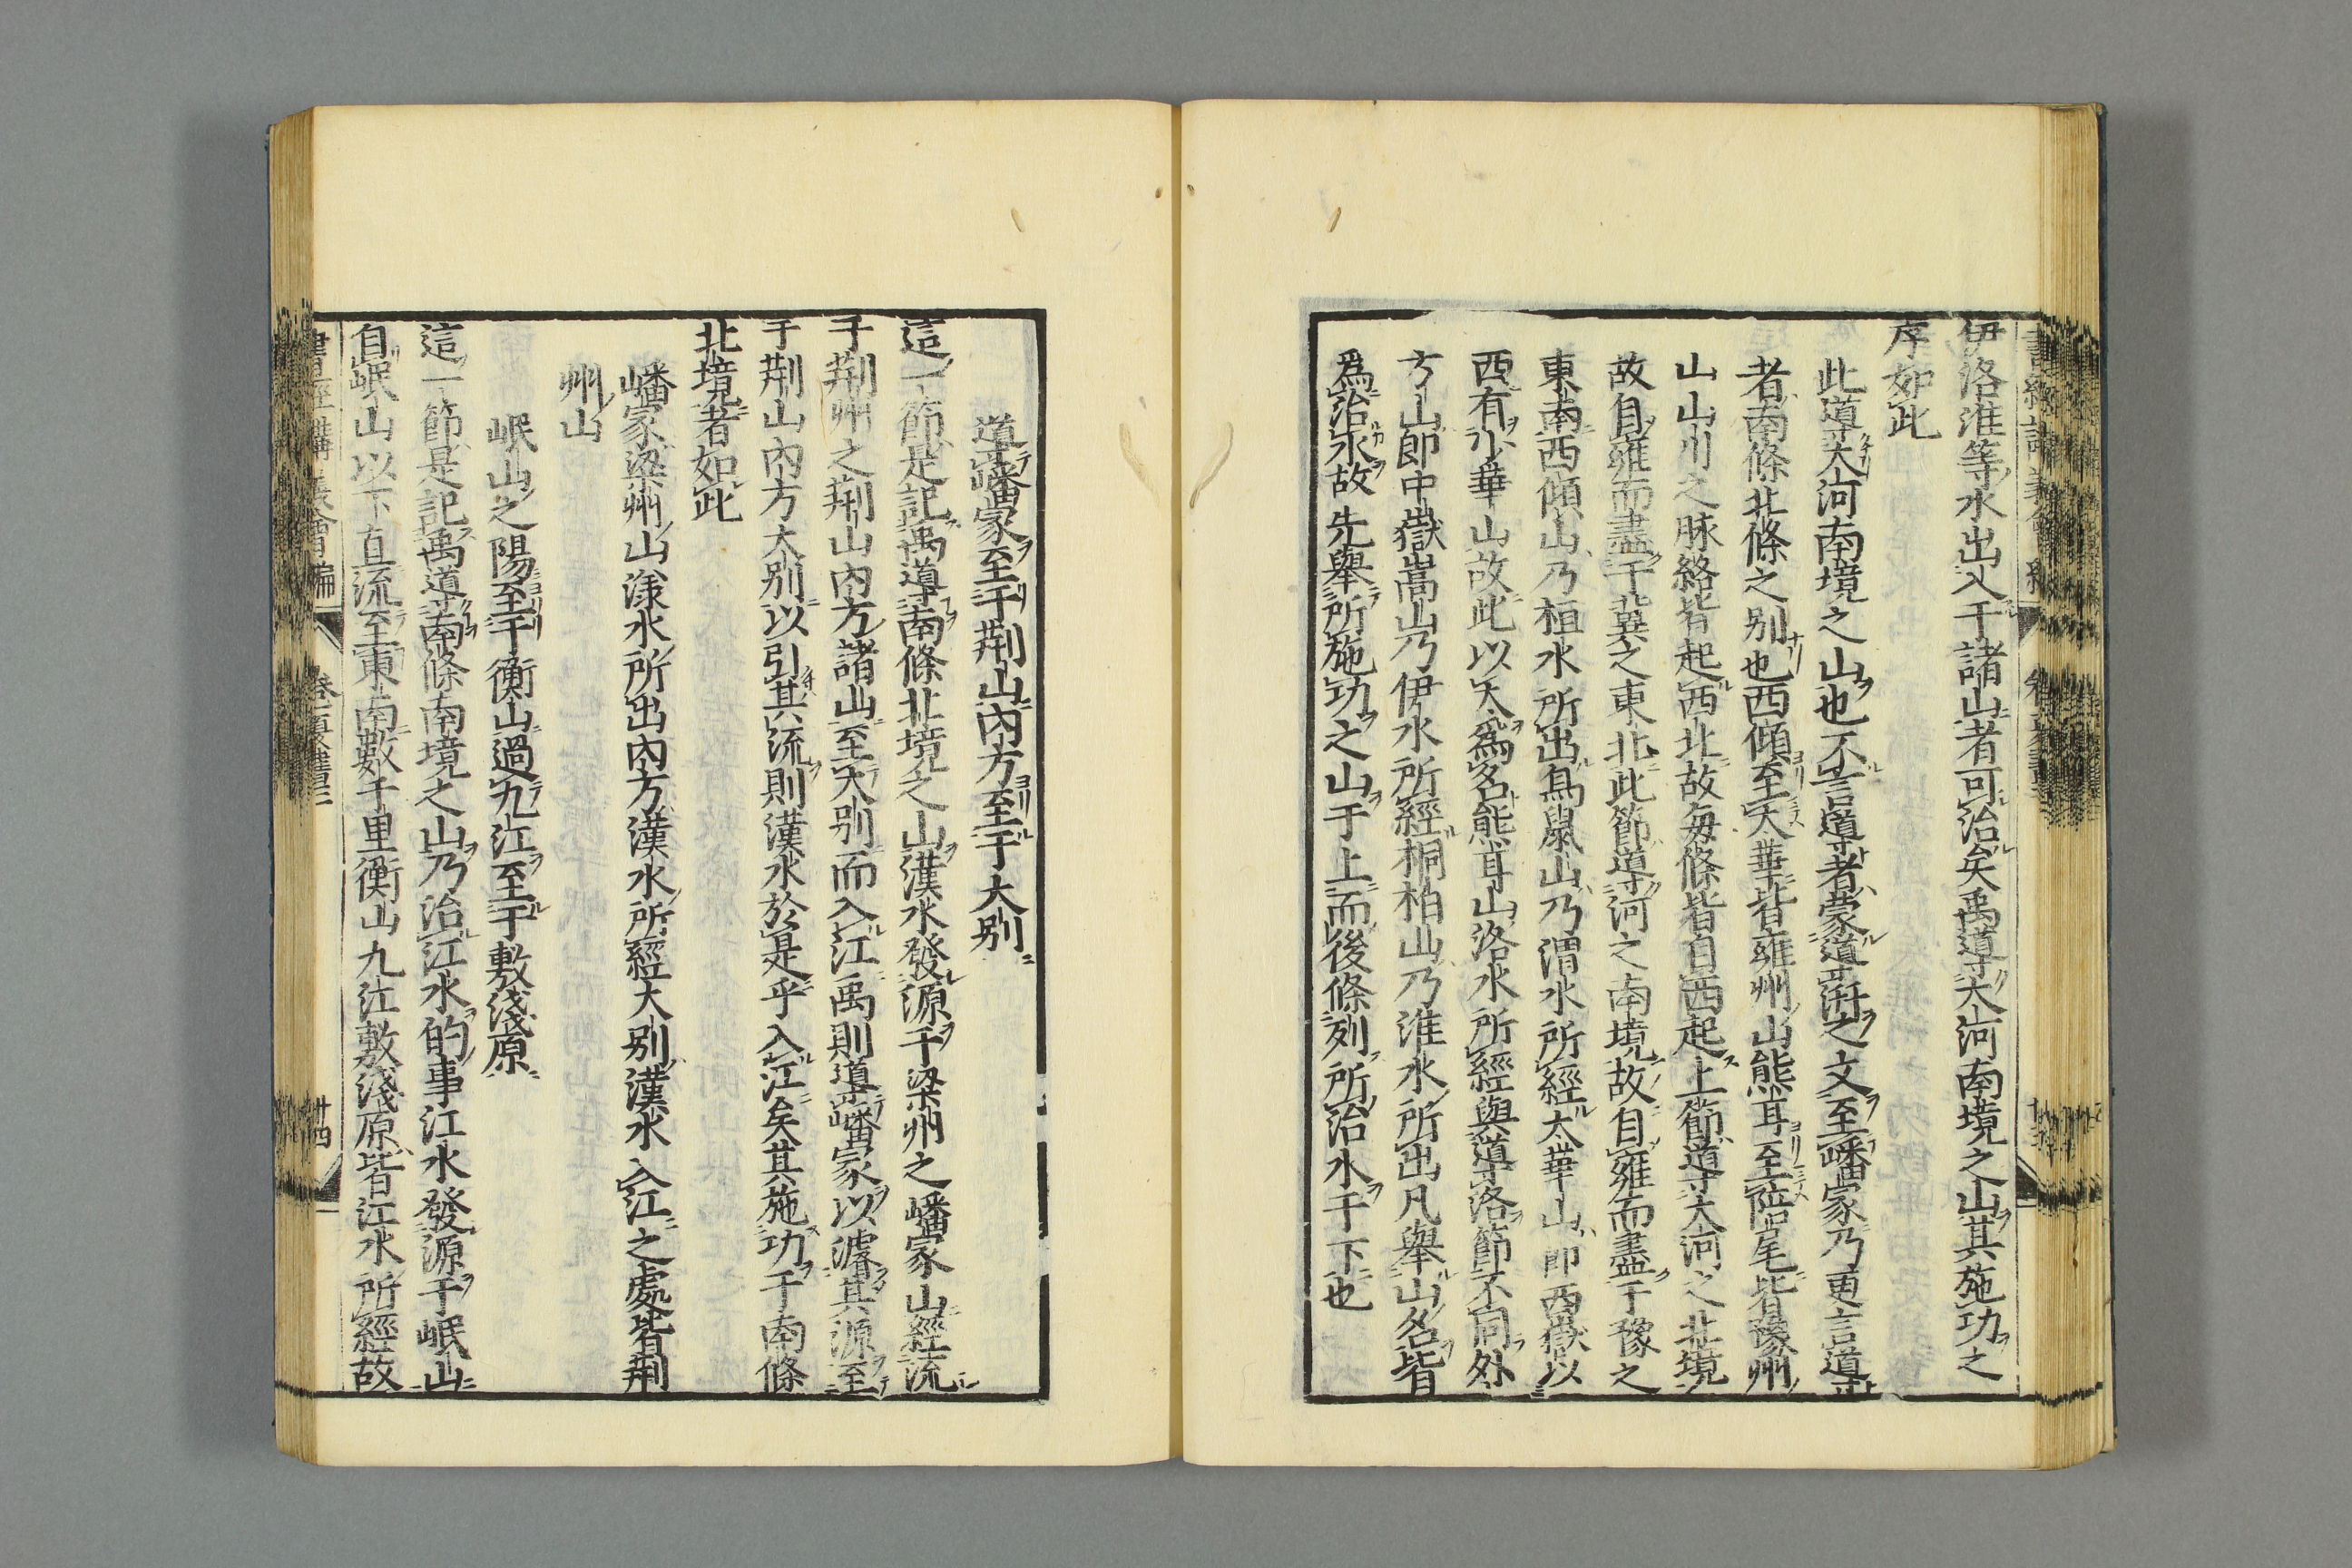 伊洛淮等水出入于諸山者可治矣禹導大河南境之山其施功之
序如此
此導大河南境之山也不言導者蒙導岍之文至嶓冢乃更言導
者南條北條之別也西傾至大華皆雍州山熊耳至陪尾皆豫州
山山川之脉絡皆起西北故每條皆自西起上節導大河之北境
故自雍而盡于冀之東北此節導河之南境故自雍而盡于豫之
東南西傾山乃桓水所出鳥鼠山乃渭水所經太華山即西嶽以
西有少華山故此以大爲名熊耳山洛水所經與導洛節不同外
方山即中嶽嵩山乃伊水所經桐柏山乃淮水所出凡舉山名皆
爲治水故先舉所施功之山于上而後條列所治水于下也
導嶓冢至于荆山內方至于大別
這一節是記禹導南條北境之山漢水發源于梁州之嶓冢山經流
于荆州之荆山內方諸山至大別而入江禹則導嶓冢以濬其源至
于荆山內方大別以引其流則漢水於是乎入江矣其施功于南條
北境者如此
嶓冢梁州山漾水所出內方漢水所經大別漢水入江之處皆荆
州山
岷山之陽至于衡山過九江至于敷淺原
這一節是記禹導南條南境之山乃治江水的事江水發源于岷山
自岷山以下直流至東南數千里衡山九江敷淺原皆江水所經故
書經講義會編 卷三夏書三 廿四